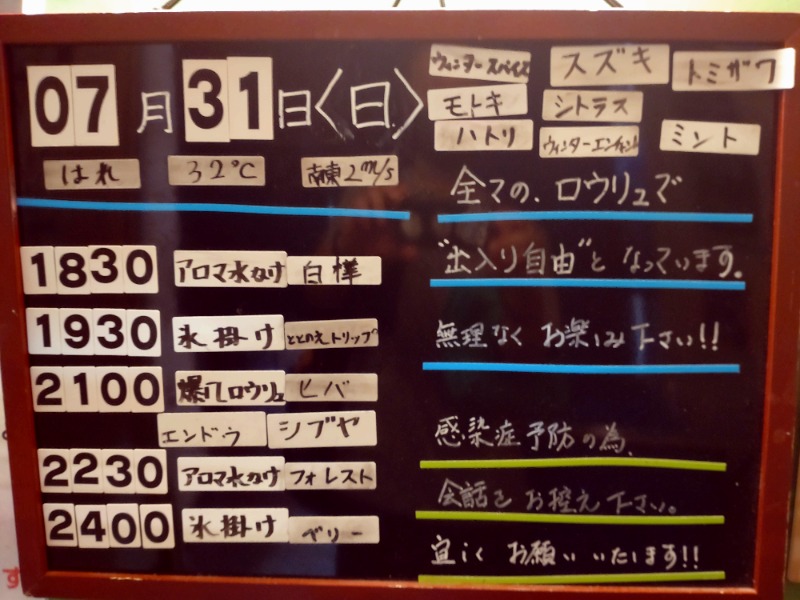 07月31日〈日〉
はれ 32℃ 南東2m/s
1830 アロマ水かけ 白樺
1930 氷掛け ととのえトリップ
2100 爆パロウリュ ヒバ
エンドウ シブヤ
2230 アロマ水かけ フォレスト
2400 氷掛け ベリー
ウィンタースパイス スズキ トミザワ
モトキ シトラス
ハトリ ウィンターエンチャント ミント
全ての、ロウリュで
"出入り自由"となっています。
無理なくお楽しみ下さい!!
感染症予防の為、
会話をお控え下さい。
宜しくお願いいたします!!
す